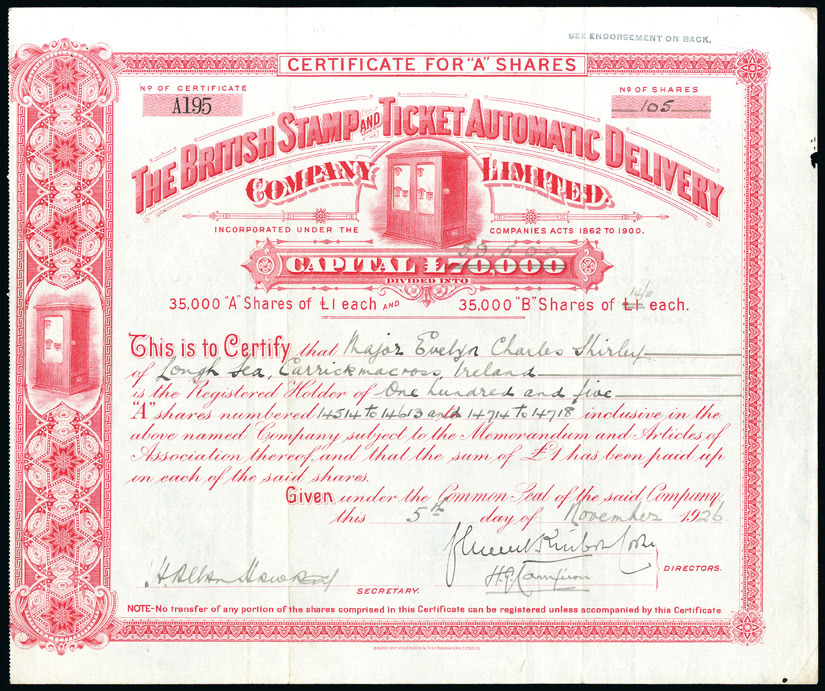 SEE ENDORSEMENT ON BACK.
CERTIFICATE FOR "A" SHARES
No OF CERTIFICATE
A195
No OF SHARES
105
THE BRITISH STAMP AND TICKET AUTOMATIC DELIVERY
COMPANY LIMITED.
INCORPORATED UNDER THE COMPANIES ACTS 1862 TO 1900.
CAPITAL £70,000
DIVIDED INTO
35,000 "A" Shares of £1 each AND 35,000 "B" Shares of £1 each.
This is to Certify that Major Evelyn Charles Shirley
of Lough Fea, Carrickmacross, Ireland
is the Registered Holder of One hundred and five
"A" shares numbered 14514 to 14613 and 14714 to 14718 inclusive in the
above named Company subject to the Memorandum and Articles of
Association thereof, and that the sum of £1 has been paid up
on each of the said shares.
Given under the Common Seal of the said Company,
this 5th day of November 1926
DIRECTORS.
SECRETARY.
NOTE-No transfer of any portion of the shares comprised in this Certificate can be registered unless accompanied by this Certificate.